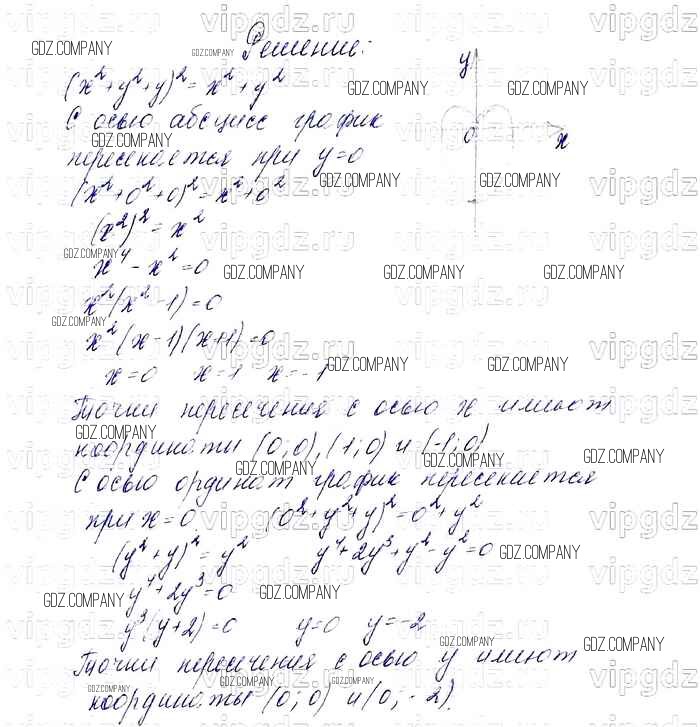 Решение:
(x²+y²+y)²=x²+y²
С осью абсцисс график
пересекается при y=0
(x²+0²+0)²=x²+0²
(x²)²=x²
x⁴-x²=0
x²(x²-1)=0
x²(x-1)(x+1)=0
x=0 x=1 x=-1
Точки пересечения с осью x имеют
координаты (0;0),(1;0) и (-1;0)
С осью ординат график пересекается
при x=0 (0²+y²+y)²=0²+y²
(y²+y)²=y² y⁴+2y³+y²-y²=0
y⁴+2y³=0
y³(y+2)=0 y=0 y=-2
Точки пересечения с осью y имеют
координаты (0;0) и (0;-2).
y
0
x
GDZ.COMPANY
vipgdz.ru